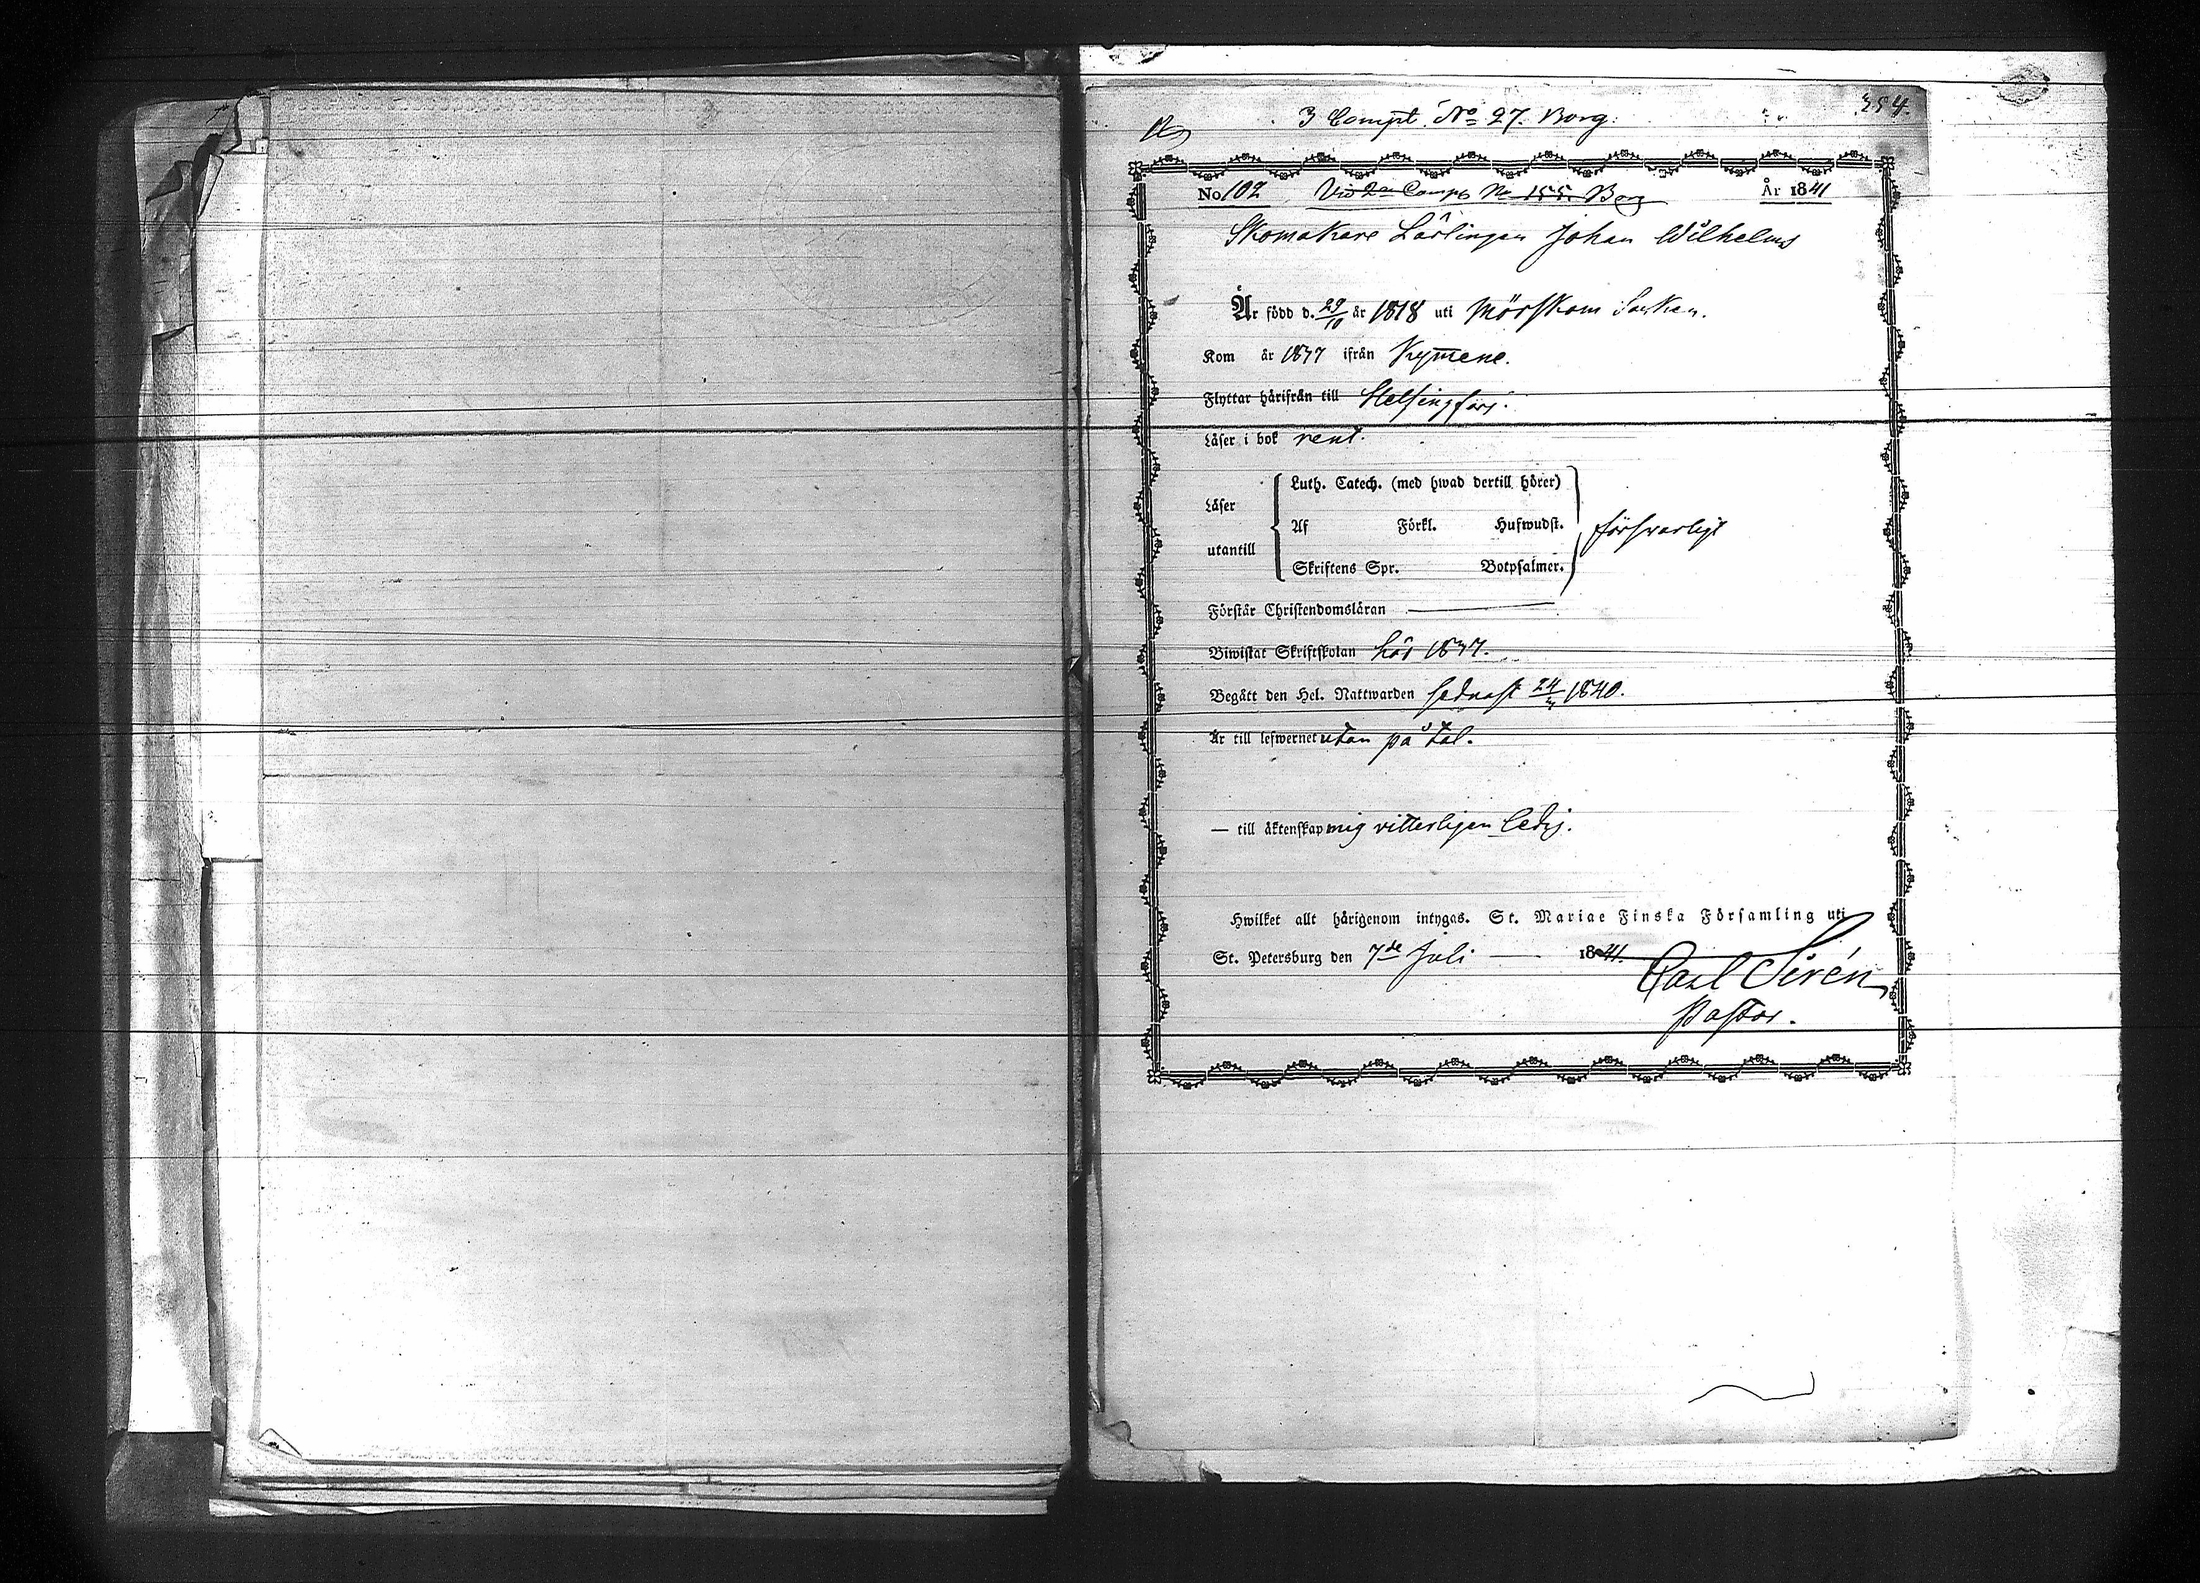 3 Compt. No 27. Borg.
354.
No 102 Vid 2n Comp No 155. Borg År 1841
Skomakare Lärlingen Johan Wilhelms
Är född d. 29/10 år 1818 uti Mörskom Socken.
Kom år 1837 ifrån Kymene.
Flyttar härifrån till Helsingfors.
Läser i bok rent.
Luth. Catech. (med hwad dertill hörer)
Läser
Af Förkl. Hufwudst.
försvarligt
utantill
Skriftens Spr. Botpsalmer.
Förstår Christendomsläran
Biwistat Skriftskolan här 1837.
Begått den Hel. Nattwarden sednast 24/ 1840.
Är till lefwernet utan på tal.
— till äktenskap mig vitterligen ledig.
Hwilket allt härigenom intygas. St. Mariae Finska Församling uti
St. Petersburg den 7de Juli — 1841.
Carl Sirén
Pastor.